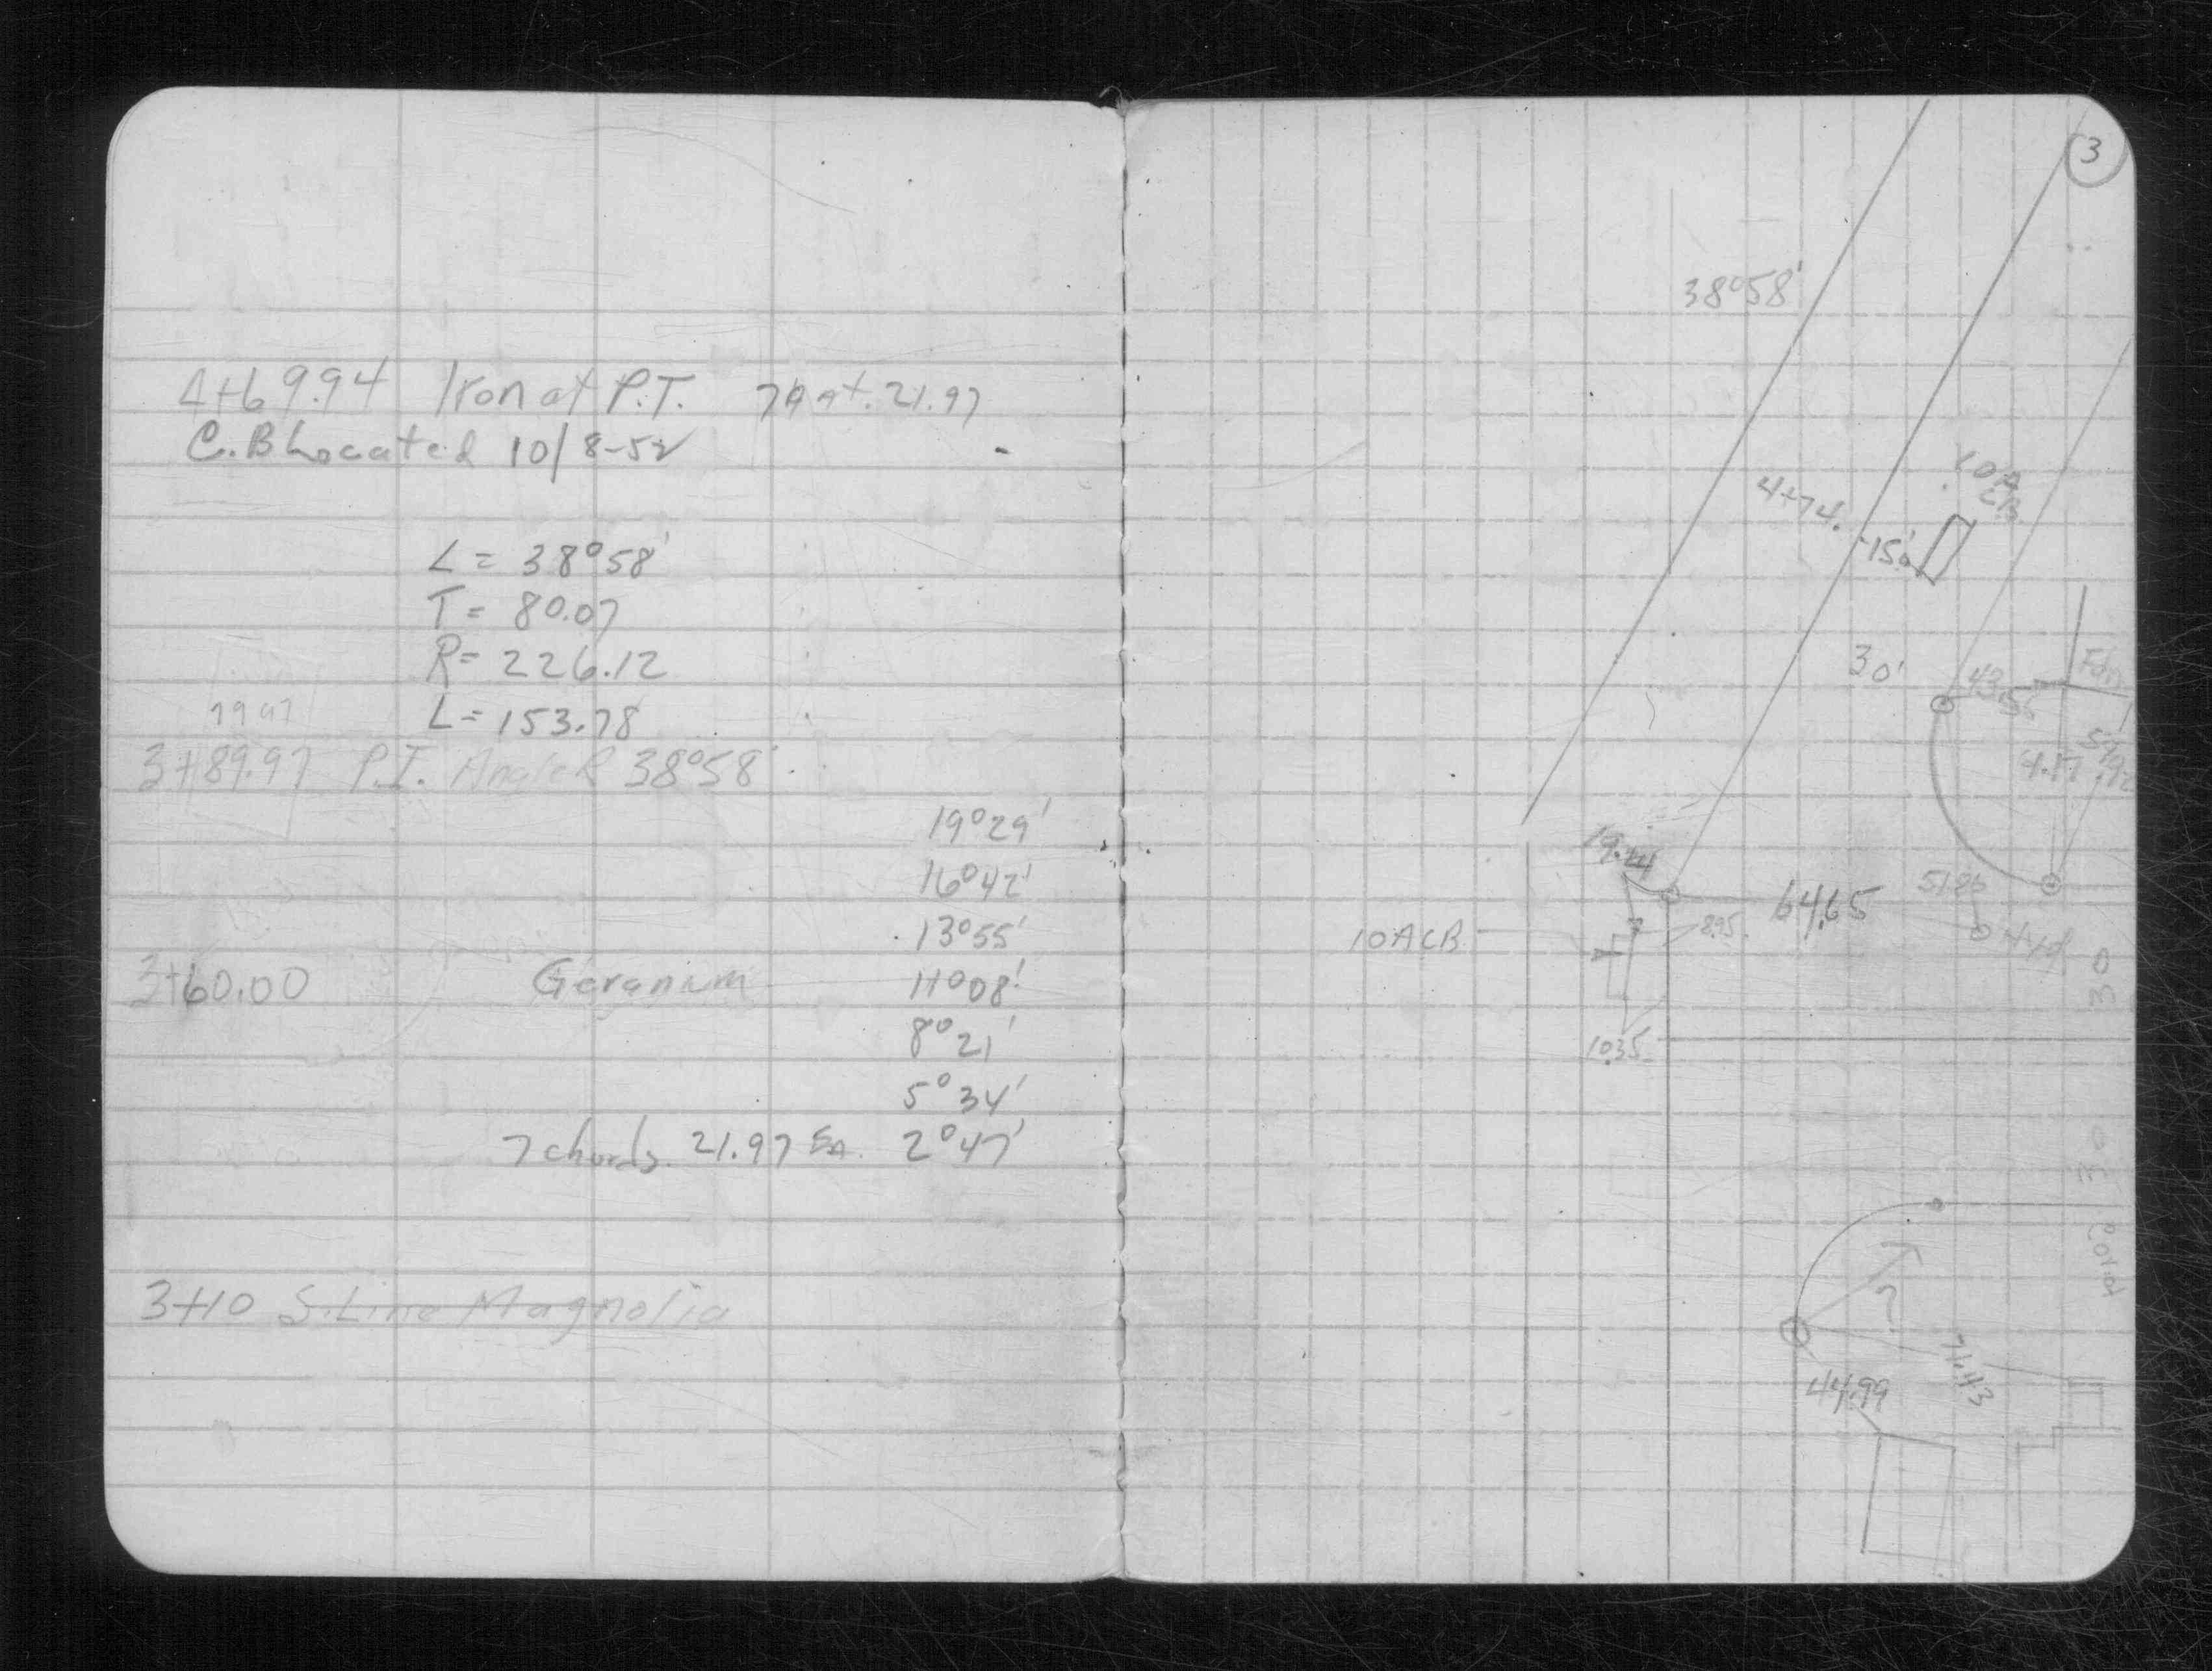 4+69.94 Iron at P.T. 7 @ at. 21.97
C.B Located 10/8-52
L = 38°58'
T = 80.07
R = 226.12
79.97
L = 153.78
3+89.97 P.I. Angle R 38°58'
19°29'
16°42'
13°55'
3+60.00 Geranium 11°08'
8°21'
5°34'
7 chords 21.97 Ea. 2°47'
3+10 S. Line Magnolia
3
38°58'
10A
CB
4+74.
15.0
30'
43.56
Fdn
4.17
19.44
64.65
51.26
10ACB
8.95
30
10.35
30
?
76.43
44.99